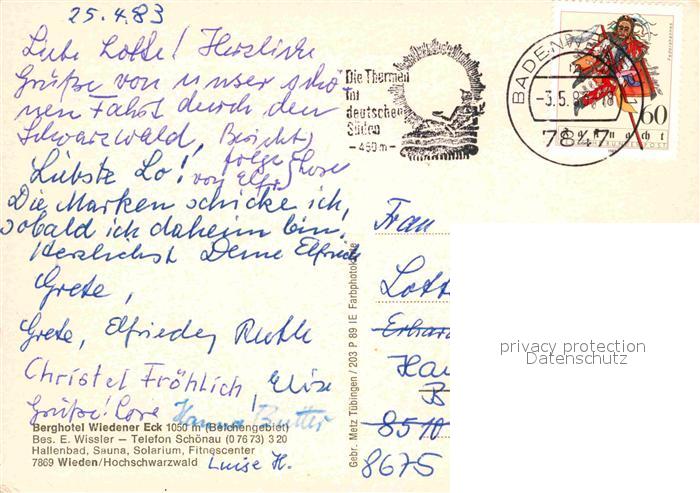 25.4.83
Liebe Lotte! Herzliche
Grüße von unser schö-
nen Fahrt durch den
Schwarzwald, Bericht
folgt Lore
von Elfr
Liebste Lo!
Die Marken schicke ich,
sobald ich daheim bin.
Herzlichst Deine Elfriede
Grete,
Grete, Elfriede, Ruth
Christel Fröhlich, Elise
Grüße! Lore Hanna Butter
Luise H.
Berghotel Wiedener Eck 1050 m (Belchengebiet)
Bes. E. Wissler — Telefon Schönau (0 76 73) 3 20
Hallenbad, Sauna, Solarium, Fitnescenter
7869 Wieden/Hochschwarzwald
Gebr. Metz Tübingen / 203 P 89 IE Farbphotokarte
Die Thermen
im
deutschen
Süden
– 450 m –
BADENW
-3.5.83-18
7847
60
Fasnacht
BUNDESPOST
Frau
Lott
Erhar
Ha
B
8510
8675
privacy protection
Datenschutz